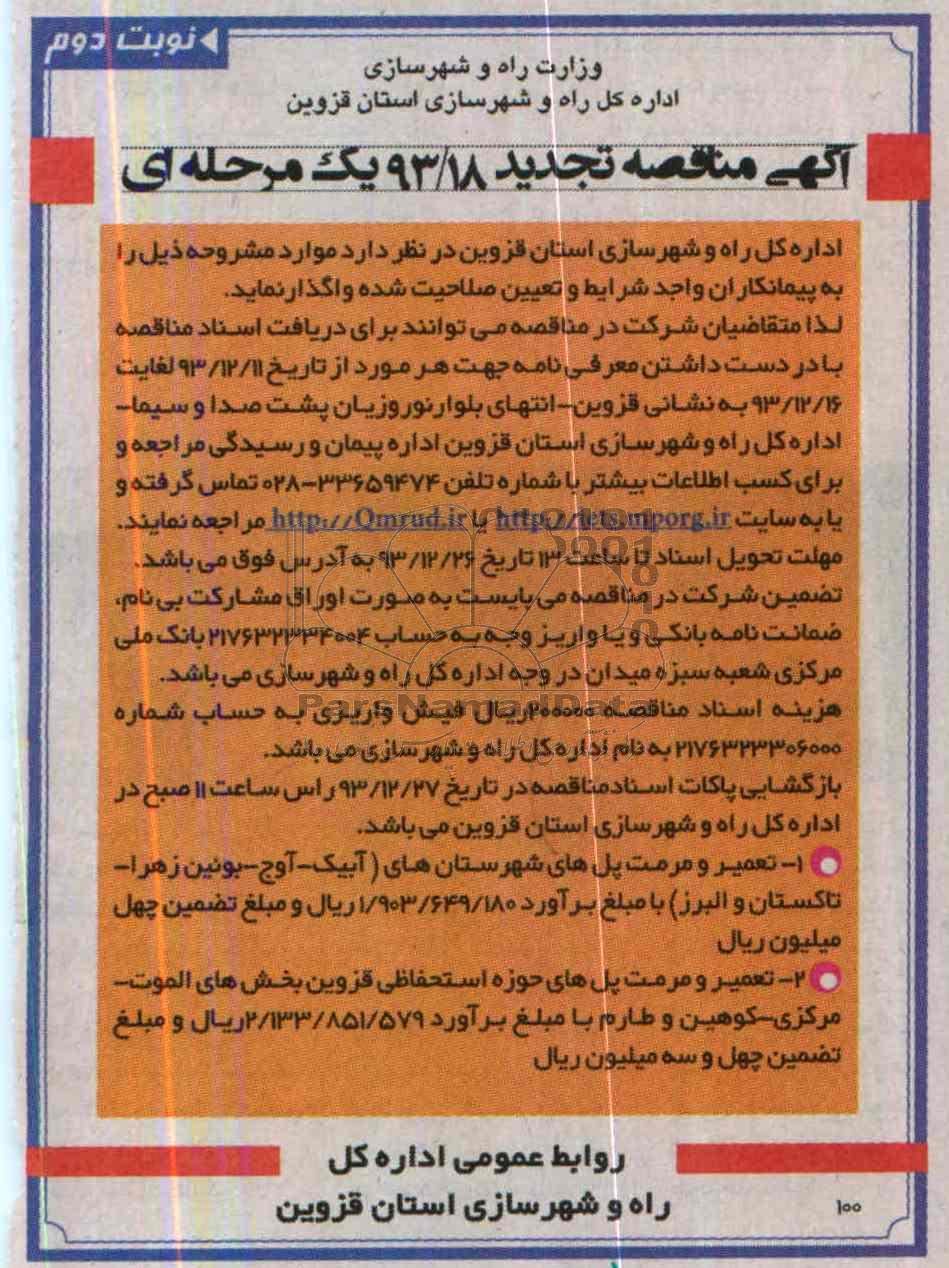 نوبت دوم
وزارت راه و شهرسازی
اداره کل راه و شهرسازی استان قزوین
آگهی مناقصه تجدید ۹۳/۱۸ یک مرحله ای
اداره کل راه و شهرسازی استان قزوین در نظر دارد موارد مشروحه ذیل را
به پیمانکاران واجد شرایط و تعیین صلاحیت شده واگذار نماید.
لذا متقاضیان شرکت در مناقصه می توانند برای دریافت اسناد مناقصه
با در دست داشتن معرفی نامه جهت هر مورد از تاریخ ۹۳/۱۲/۱۱ لغایت
۹۳/۱۲/۱۶ به نشانی قزوین-انتهای بلوار نوروزیان پشت صدا و سیما-
اداره کل راه و شهرسازی استان قزوین اداره پیمان و رسیدگی مراجعه و
برای کسب اطلاعات بیشتر با شماره تلفن ۳۳۶۵۹۴۷۴-۰۲۸ تماس گرفته و
یا به سایت http://iets.mporg.ir یا http://Qmrud.ir مراجعه نمایند.
مهلت تحویل اسناد تا ساعت ۱۳ تاریخ ۹۳/۱۲/۲۶ به آدرس فوق می باشد.
تضمین شرکت در مناقصه می بایست به صورت اوراق مشارکت بی نام،
ضمانت نامه بانکی و یا واریز وجه به حساب ۲۱۷۶۳۲۳۳۴۰۰۴ بانک ملی
مرکزی شعبه سبزه میدان در وجه اداره کل راه و شهرسازی می باشد.
هزینه اسناد مناقصه ۲۰۰۰۰۰ریال فیش واریزی به حساب شماره
۲۱۷۶۳۲۳۳۰۶۰۰۰ به نام اداره کل راه و شهرسازی می باشد.
بازگشایی پاکات اسنادمناقصه در تاریخ ۹۳/۱۲/۲۷ راس ساعت ۱۱ صبح در
اداره کل راه و شهرسازی استان قزوین می باشد.
۱- تعمیر و مرمت پل های شهرستان های ( آبیک-آوج-بوئین زهرا-
تاکستان و البرز) با مبلغ برآورد ۱/۹۰۳/۶۴۹/۱۸۰ ریال و مبلغ تضمین چهل
میلیون ریال
۲- تعمیر و مرمت پل های حوزه استحفاظی قزوین بخش های الموت-
مرکزی-کوهین و طارم با مبلغ برآورد ۲/۱۳۳/۸۵۱/۵۷۹ریال و مبلغ
تضمین چهل و سه میلیون ریال
روابط عمومی اداره کل
راه و شهرسازی استان قزوین
۱۰۰